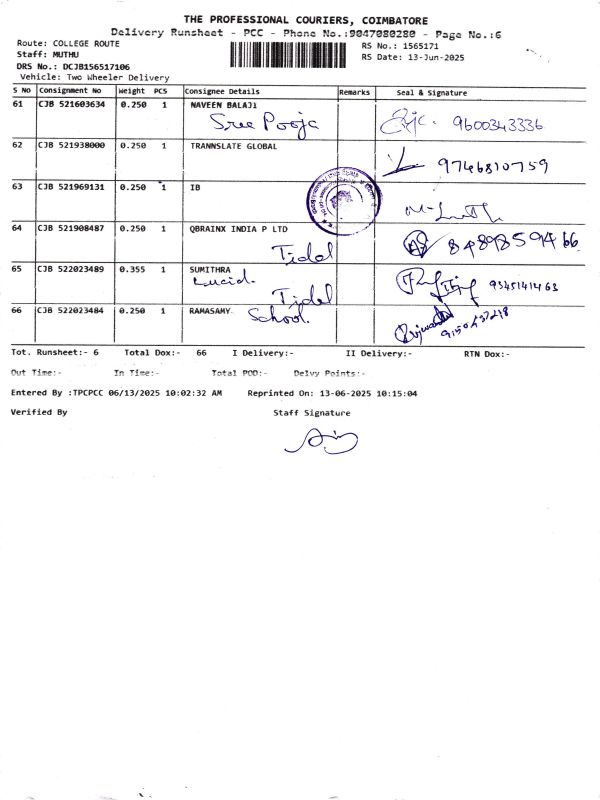 THE PROFESSIONAL COURIERS, COIMBATORE
Delivery Runsheet - PCC - Phone No.:9047080280 - Page No.:6
Route: COLLEGE ROUTE
Staff: MUTHU
DRS No.: DCJB156517106
Vehicle: Two Wheeler Delivery
RS No.: 1565171
RS Date: 13-Jun-2025
S No Consignment No Weight PCS Consignee Details Remarks Seal & Signature
61 CJB 521603634 0.250 1 NAVEEN BALAJI
Sree Pooja 9600343336
62 CJB 521938000 0.250 1 TRANNSLATE GLOBAL
9746810759
63 CJB 521969131 0.250 1 IB
64 CJB 521908487 0.250 1 QBRAINX INDIA P LTD
Tidel 8489859466
65 CJB 522023489 0.355 1 SUMITHRA
Lucid. 9345141463
Tidel
66 CJB 522023484 0.250 1 RAMASAMY
School.
Tot. Runsheet:- 6 Total Dox:- 66 I Delivery:- II Delivery:- RTN Dox:-
Out Time:- In Time:- Total POD:- Delvy Points:-
Entered By :TPCPCC 06/13/2025 10:02:32 AM Reprinted On: 13-06-2025 10:15:04
Verified By Staff Signature